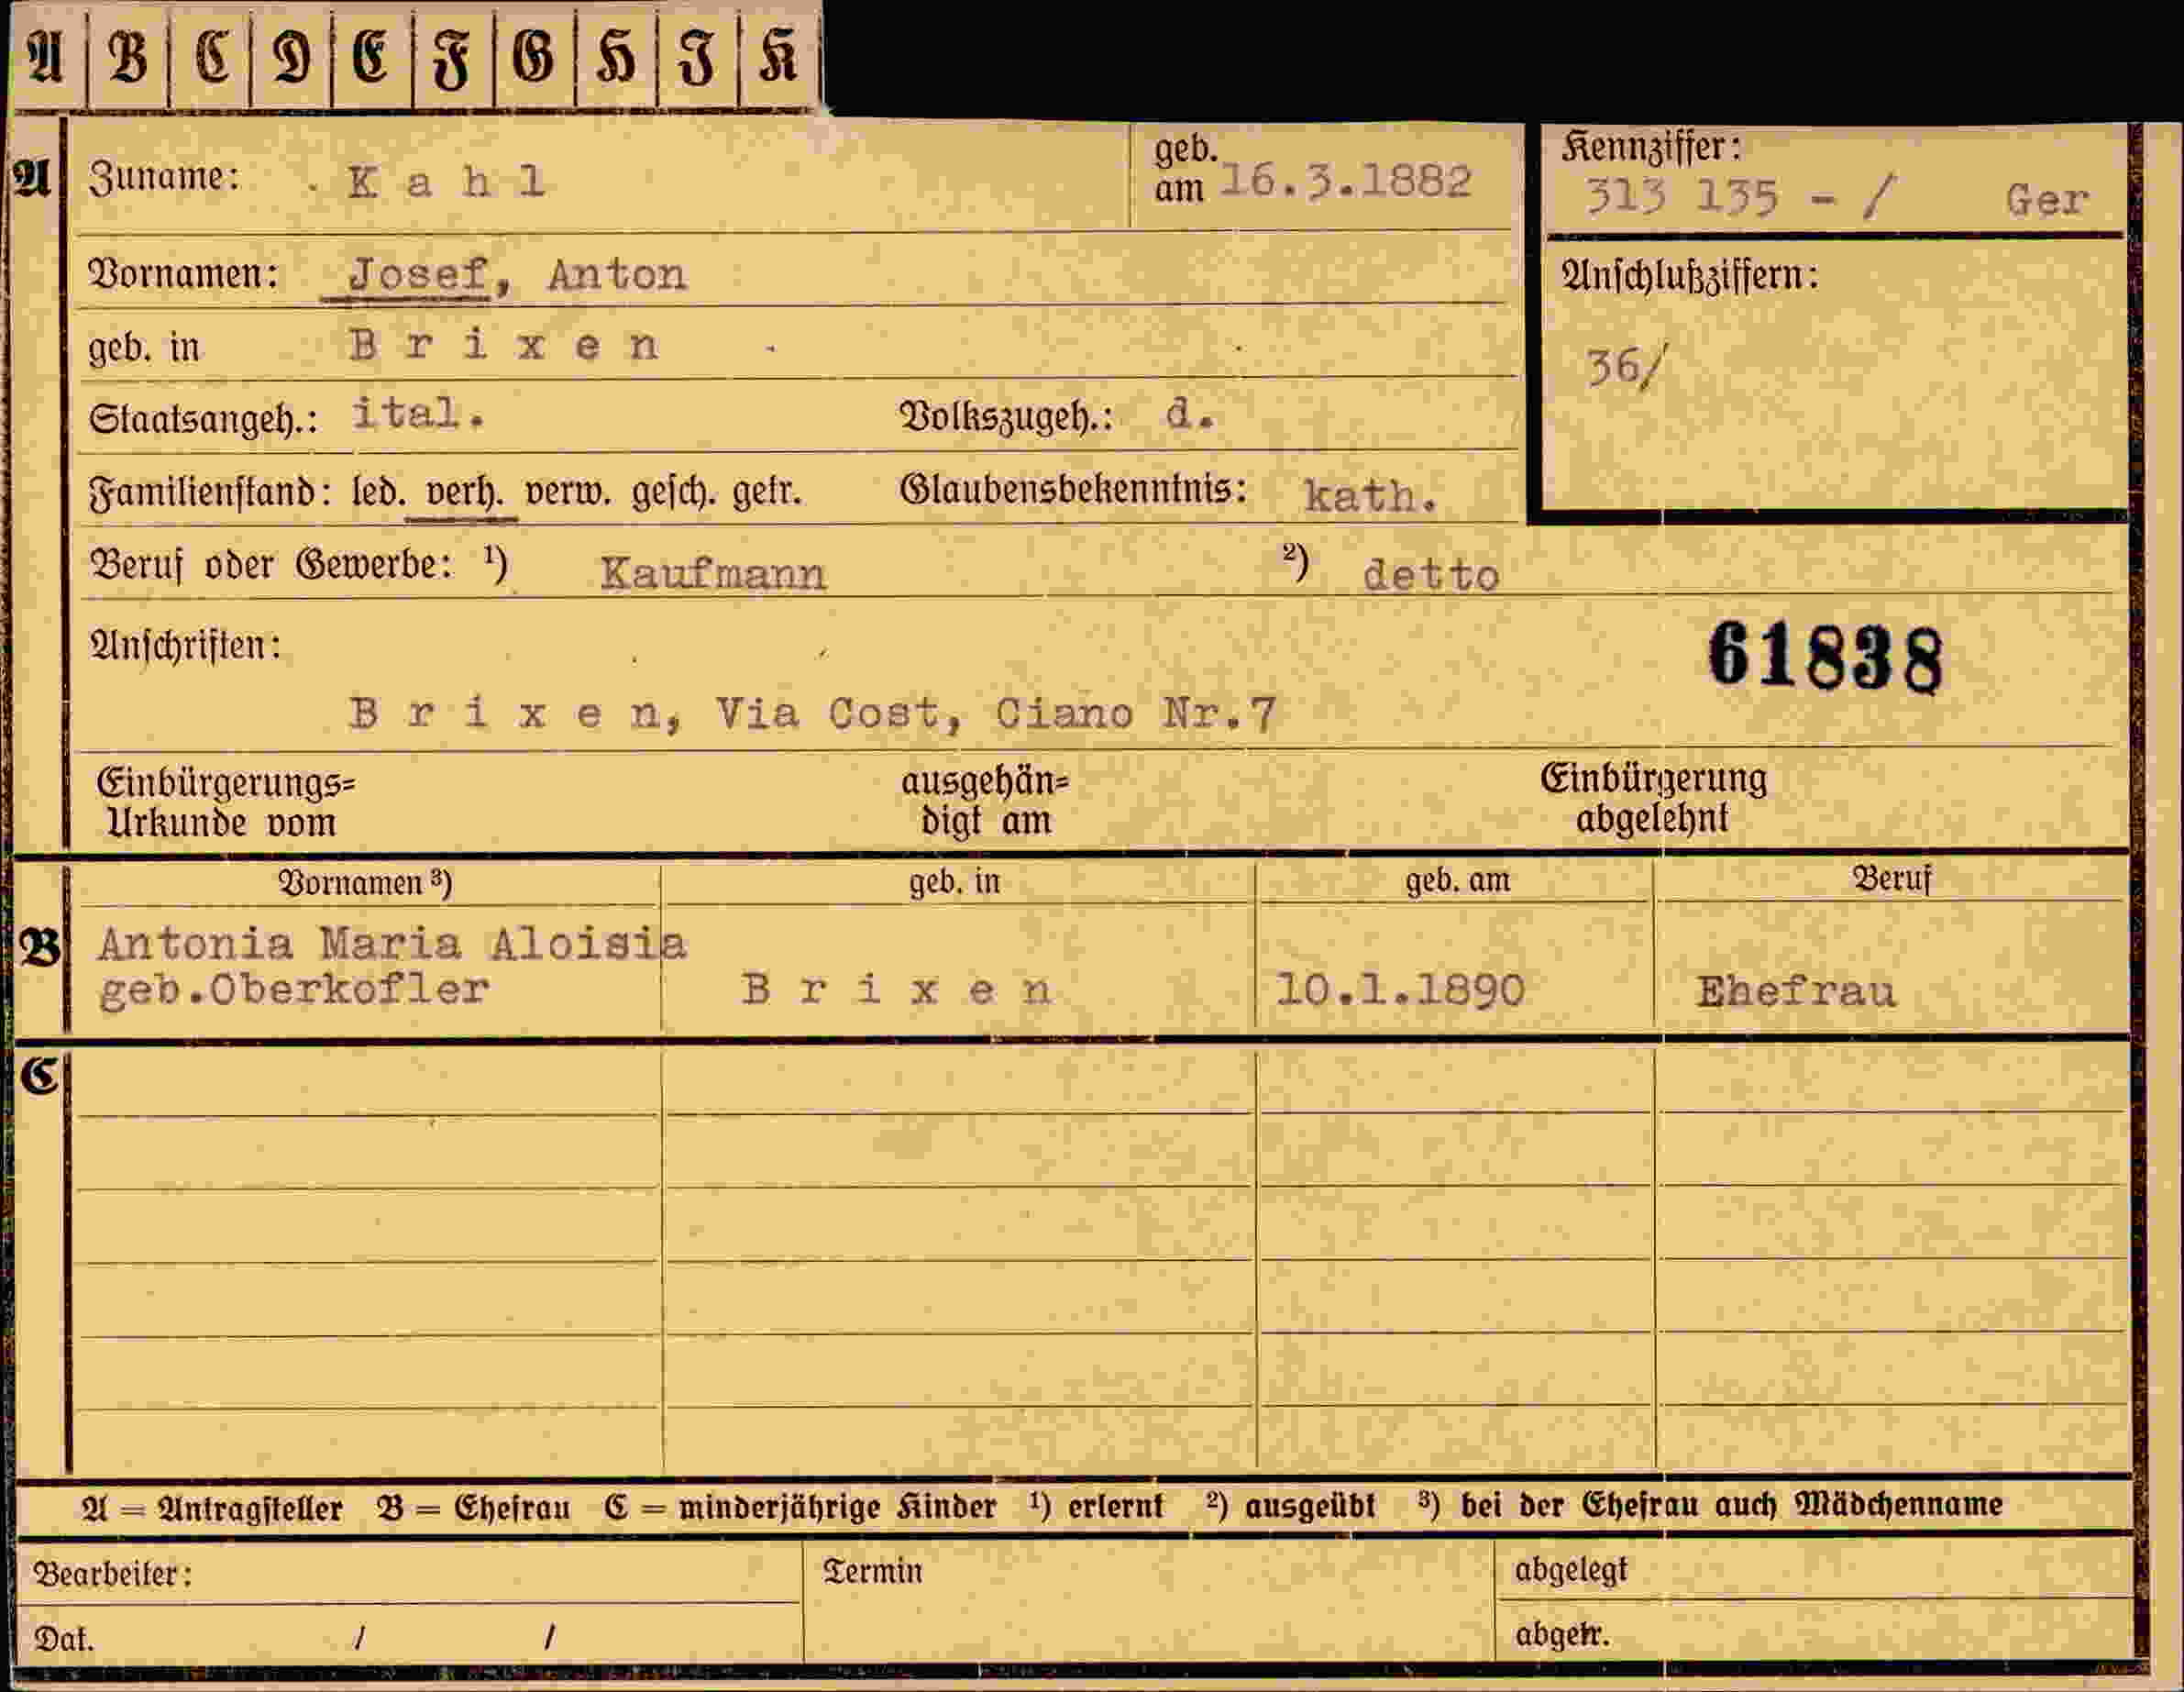 A B C D E F G H I K
A Zuname: Kahl geb. am 16.3.1882 Kennziffer: 313 135 - / Ger
Vornamen: Josef, Anton Anschlußziffern:
geb. in Brixen 36/
Staatsangeh.: ital. Volkszugeh.: d.
Familienstand: led. verh. verw. gesch. getr. Glaubensbekenntnis: kath.
Beruf oder Gewerbe: 1) Kaufmann 2) detto
Anschriften: 61838
Brixen, Via Cost, Ciano Nr.7
Einbürgerungs= ausgehän= Einbürgerung
Urkunde vom digt am abgelehnt
Vornamen 3) geb. in geb. am Beruf
B Antonia Maria Aloisia
geb.Oberkofler Brixen 10.1.1890 Ehefrau
C
A = Antragsteller B = Ehefrau C = minderjährige Kinder 1) erlernt 2) ausgeübt 3) bei der Ehefrau auch Mädchenname
Bearbeiter: Termin abgelegt
Dat. / / abgetr.